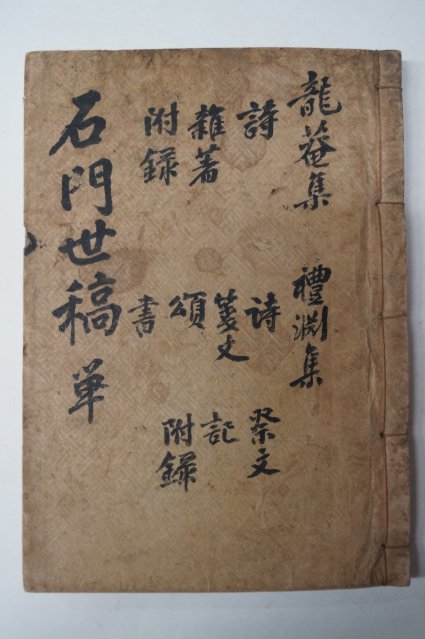 龍菴集
詩
雜著
附録
禮渕集
詩
箋文
頌
書
祭文
記
附録
石門世稿 単